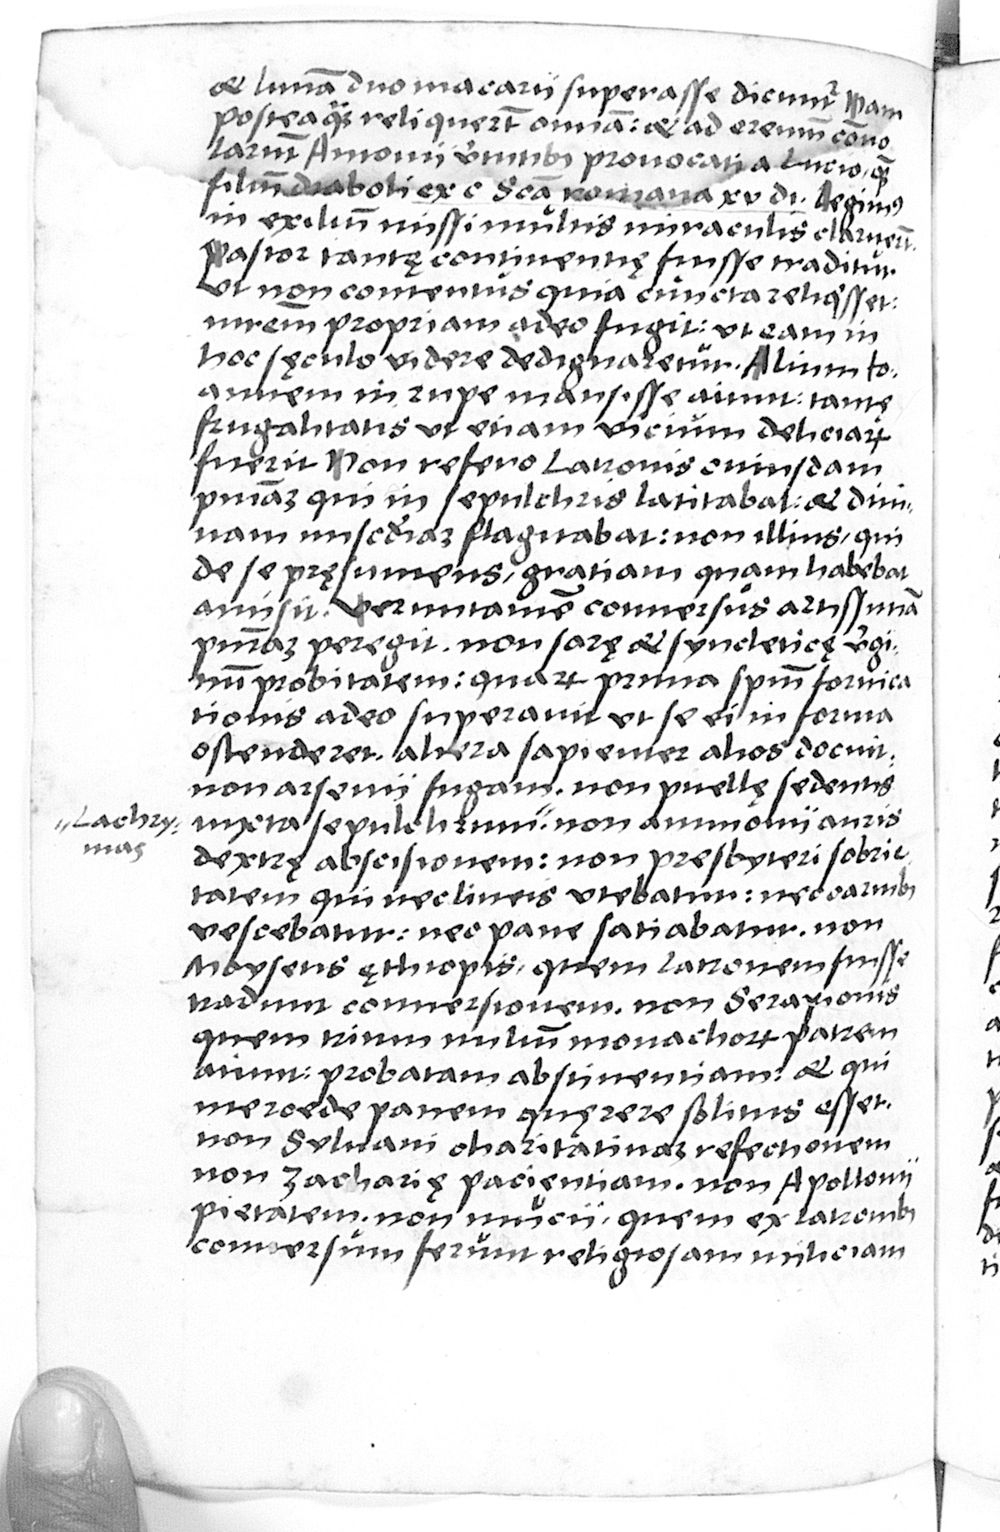 & lunā duo macarii superasse dicunt᷑ Nam
posteaꝙ̃ reliquert̄ omnia: & ad eremū cōuo
larūt Antonii v̄tutibꝰ prouocati a Lucio, quē
filiū diaboli ex c Scā romana xv di. legimꝰ
in exiliū missi multis miraculis claruert̄.
Pastor tantę continentię fuisse traditur.
Vt non contentus quia cuncta reliq̇sset:
mr̄em propriam adeo fugit: vt eam in
hoc sęculo videre dedignaretur. Alium Io-
annem in rupe mansisse aiunt: tantę
frugalitatis vt etiam vicium deliciaꝝ
fuerit Non refero Latronis cuiusdam
pniāꝫ qui in sepulchris latitabat: & diui-
nam miscdīaꝫ flagitabat: non illius, qui
de se pręsumens, gratiam quam habebat
amisit. Veruntamē conuersus artissimā
pniāꝫ peregit. non sarę & syncleticę v̄gi-
nū probitatem: quaꝝ prima spm̄ fornica
tionis adeo superauit vt se ei in forma
ostenderet. altera sapienter alios docuit.
non arsenii fugam. non puellę sedentis
iuxta sepulchrum": non ammonii auris
dextrę abscisionem: non presbyteri sobrie-
tatem qui nec lineis vtebatur: nec carnibꝰ
vescebatur: nec pane satiabatur. non
Moysens ęthiopis, quem latronem fuisse
tradunt conuersionem. non Serapionis
quem trium miliū monachoꝝ patrem
aiunt: probatam abstinentiam: & qui
mercede panem quęrere solitus esset.
non Syluani charitatiuaꝫ refectionem
non Zacharię pacientiam. non Apollonii
pietatem. non mucii, quem ex latronibꝰ
conuersum ferunt religiosam miliciam
"Lachry-
mas